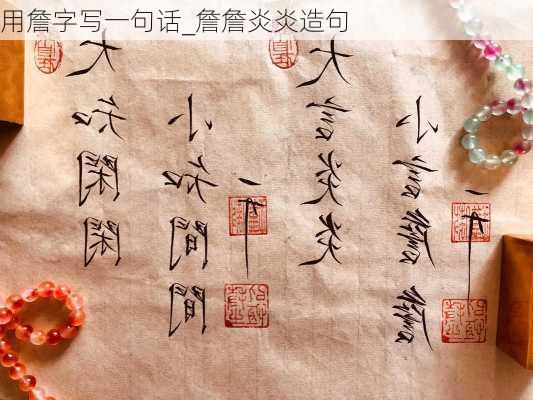 用詹字写一句话_詹詹炎炎造句
大知閑閑
小知間間
大言炎炎
小言詹詹